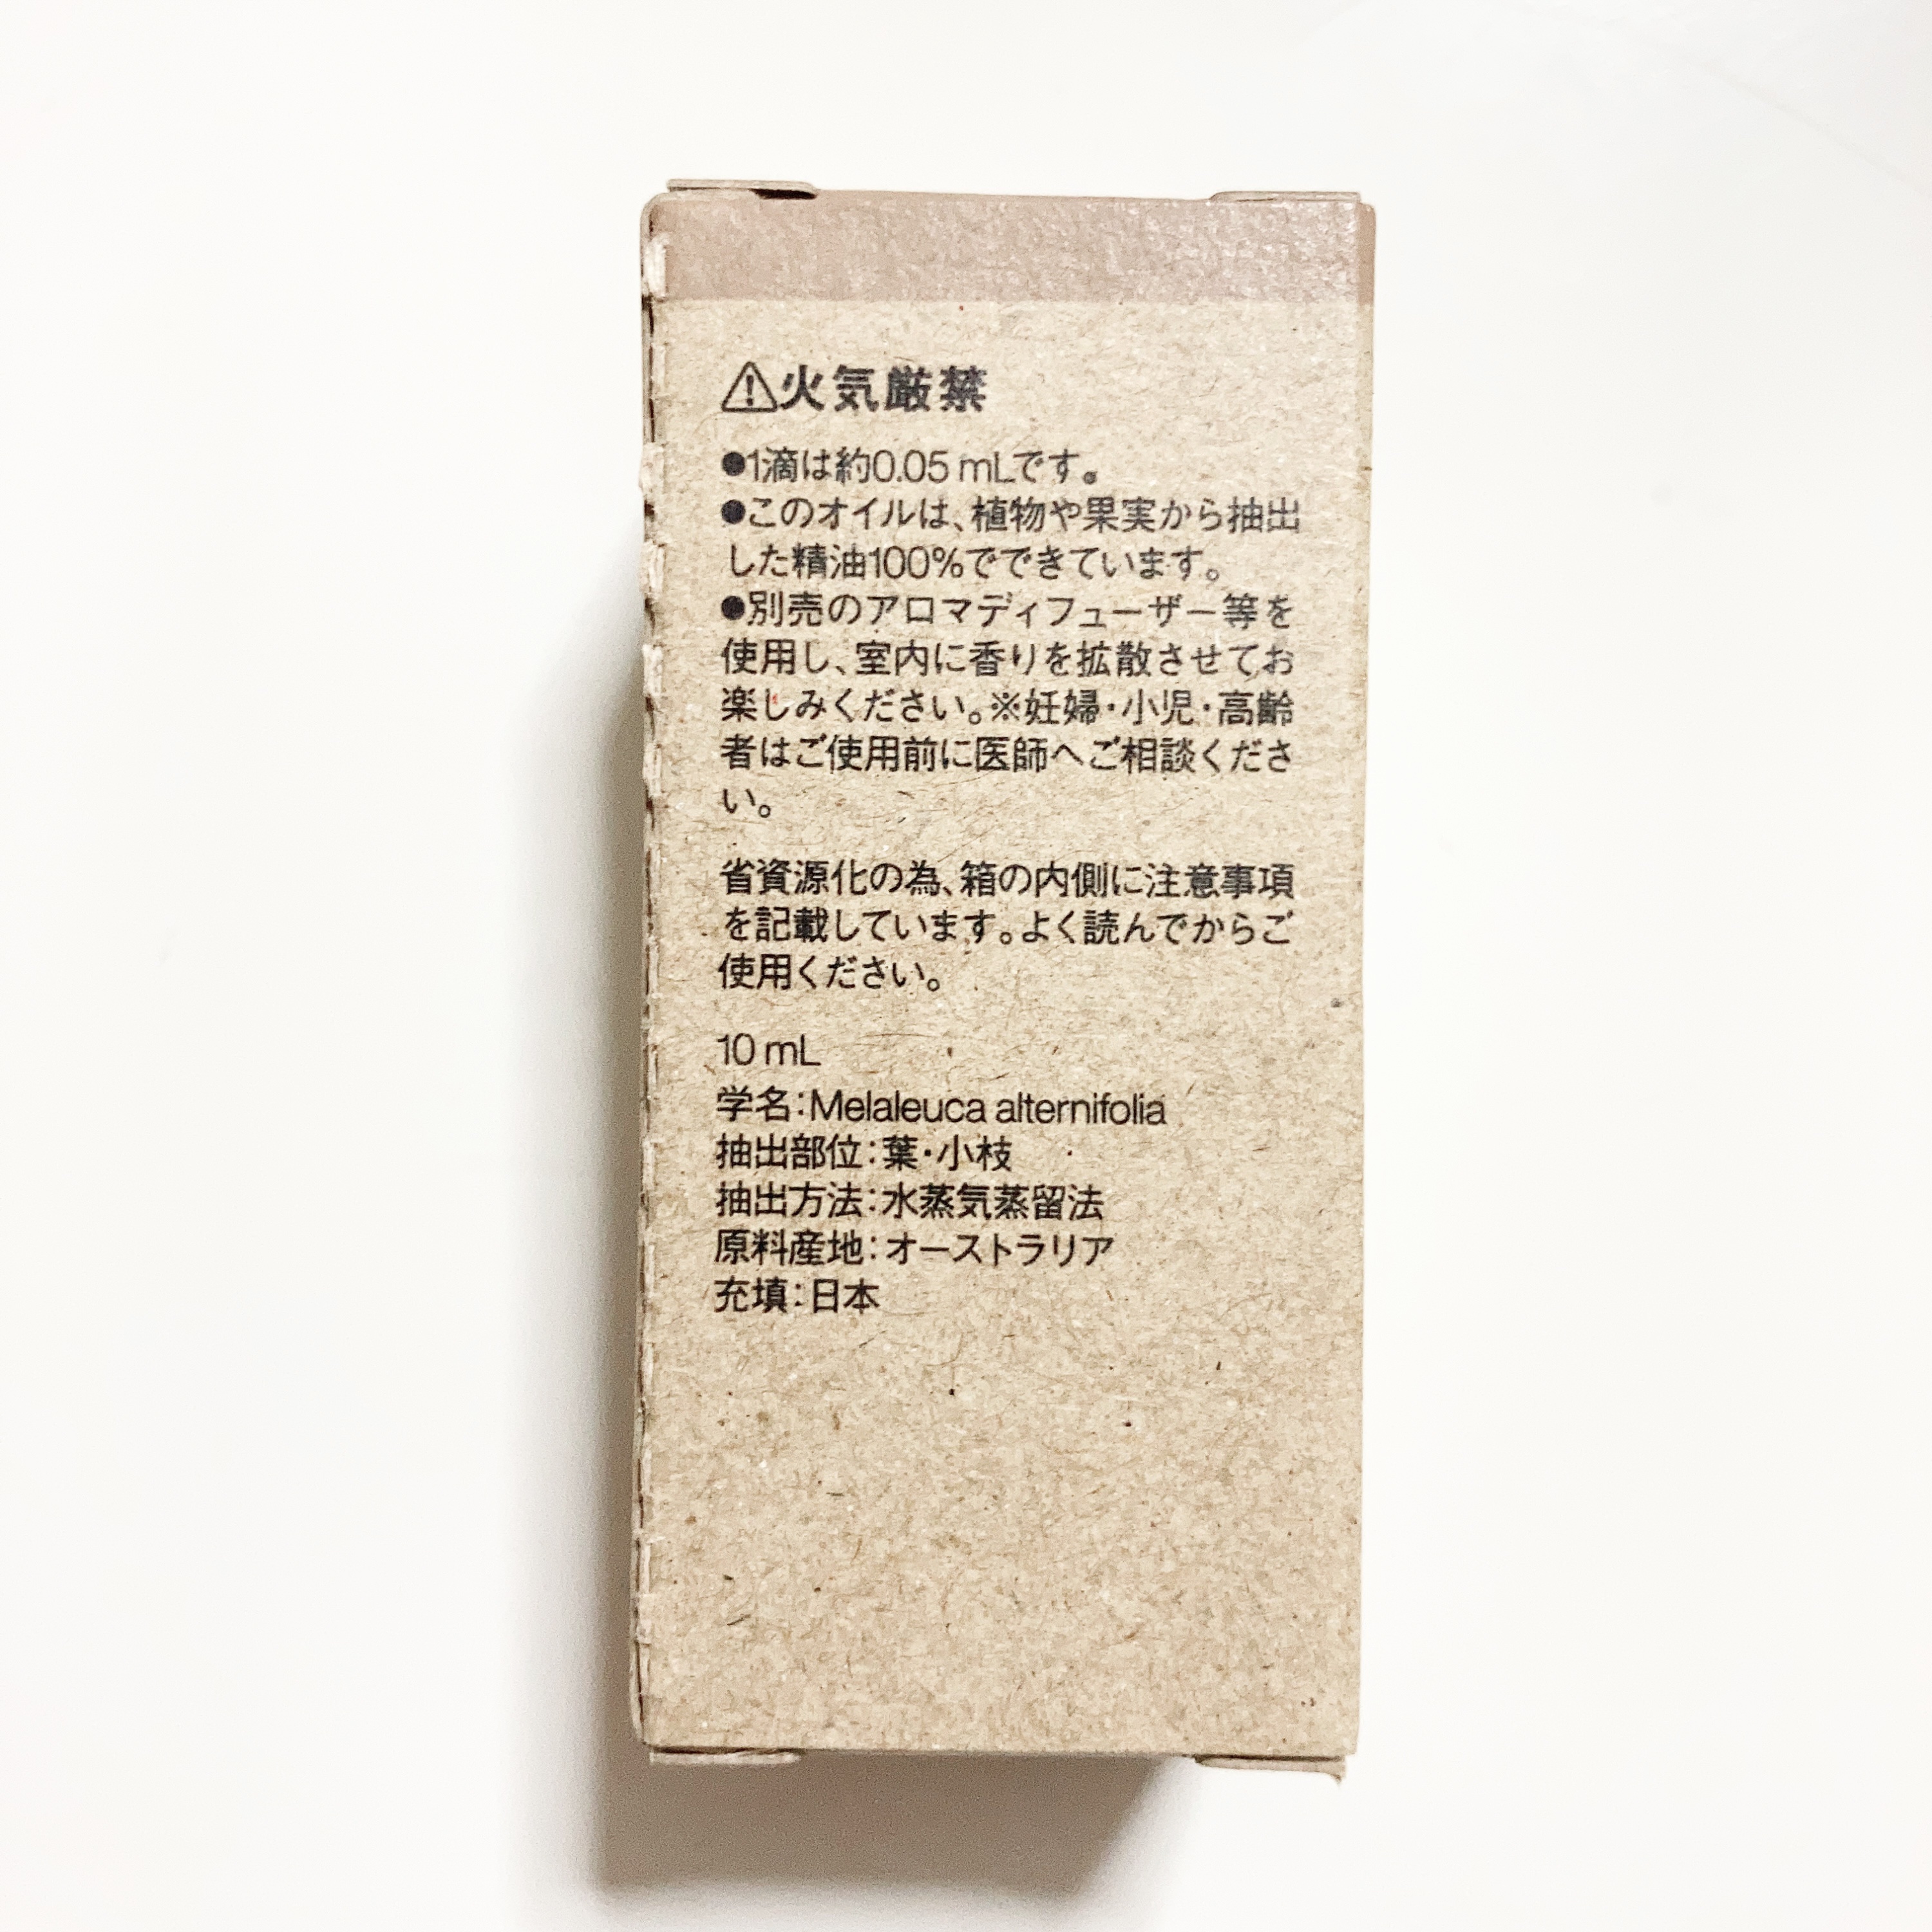 ⚠火気厳禁
●1滴は約0.05 mLです。
●このオイルは、植物や果実から抽出
した精油100%でできています。
●別売のアロマディフューザー等を
使用し、室内に香りを拡散させてお
楽しみください。※妊婦・小児・高齢
者はご使用前に医師へご相談くださ
い。
省資源化の為、箱の内側に注意事項
を記載しています。よく読んでからご
使用ください。
10 mL
学名：Melaleuca alternifolia
抽出部位：葉・小枝
抽出方法：水蒸気蒸留法
原料産地：オーストラリア
充填：日本